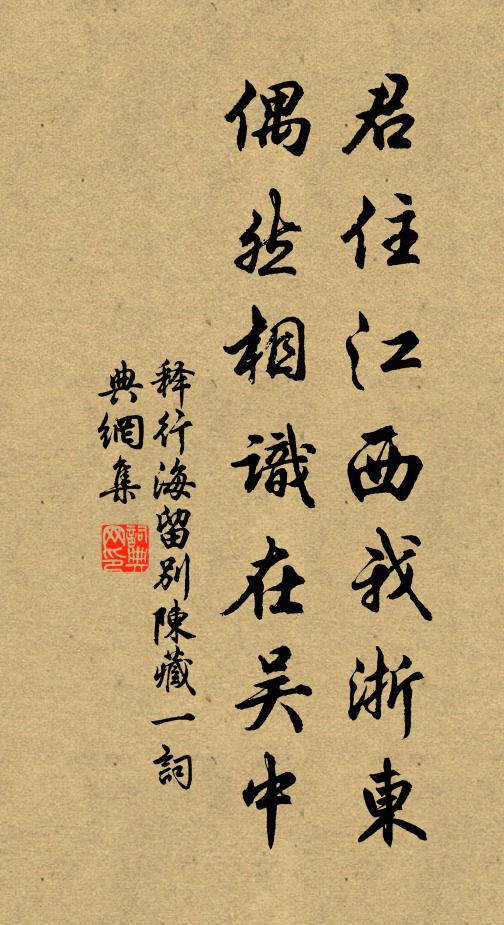 君住江西我浙東
偶然相識在吴中
释行海留别陳藏一詞
典網集
詞典
网印